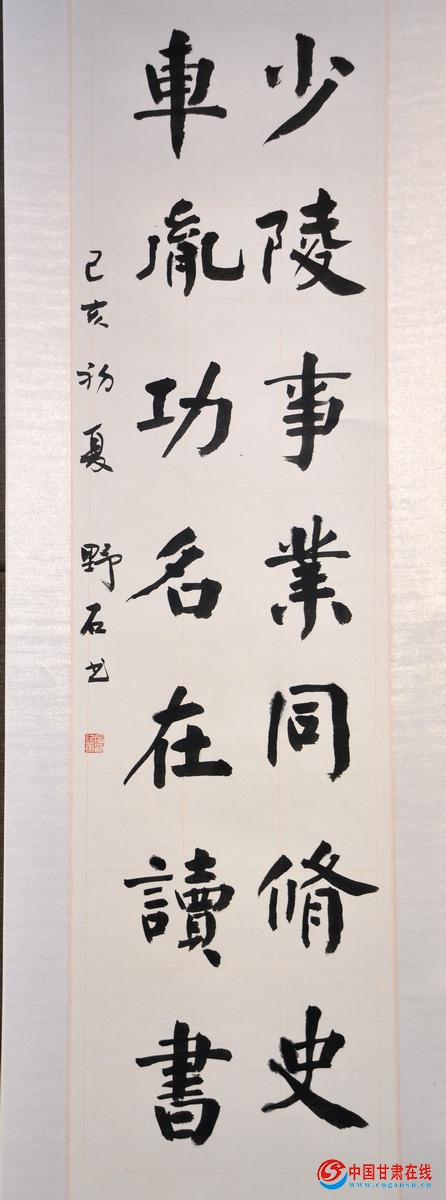 少陵事業同脩史
車胤功名在讀書
己亥初夏 野石书
中国甘肃在线
www.cngansu.cn